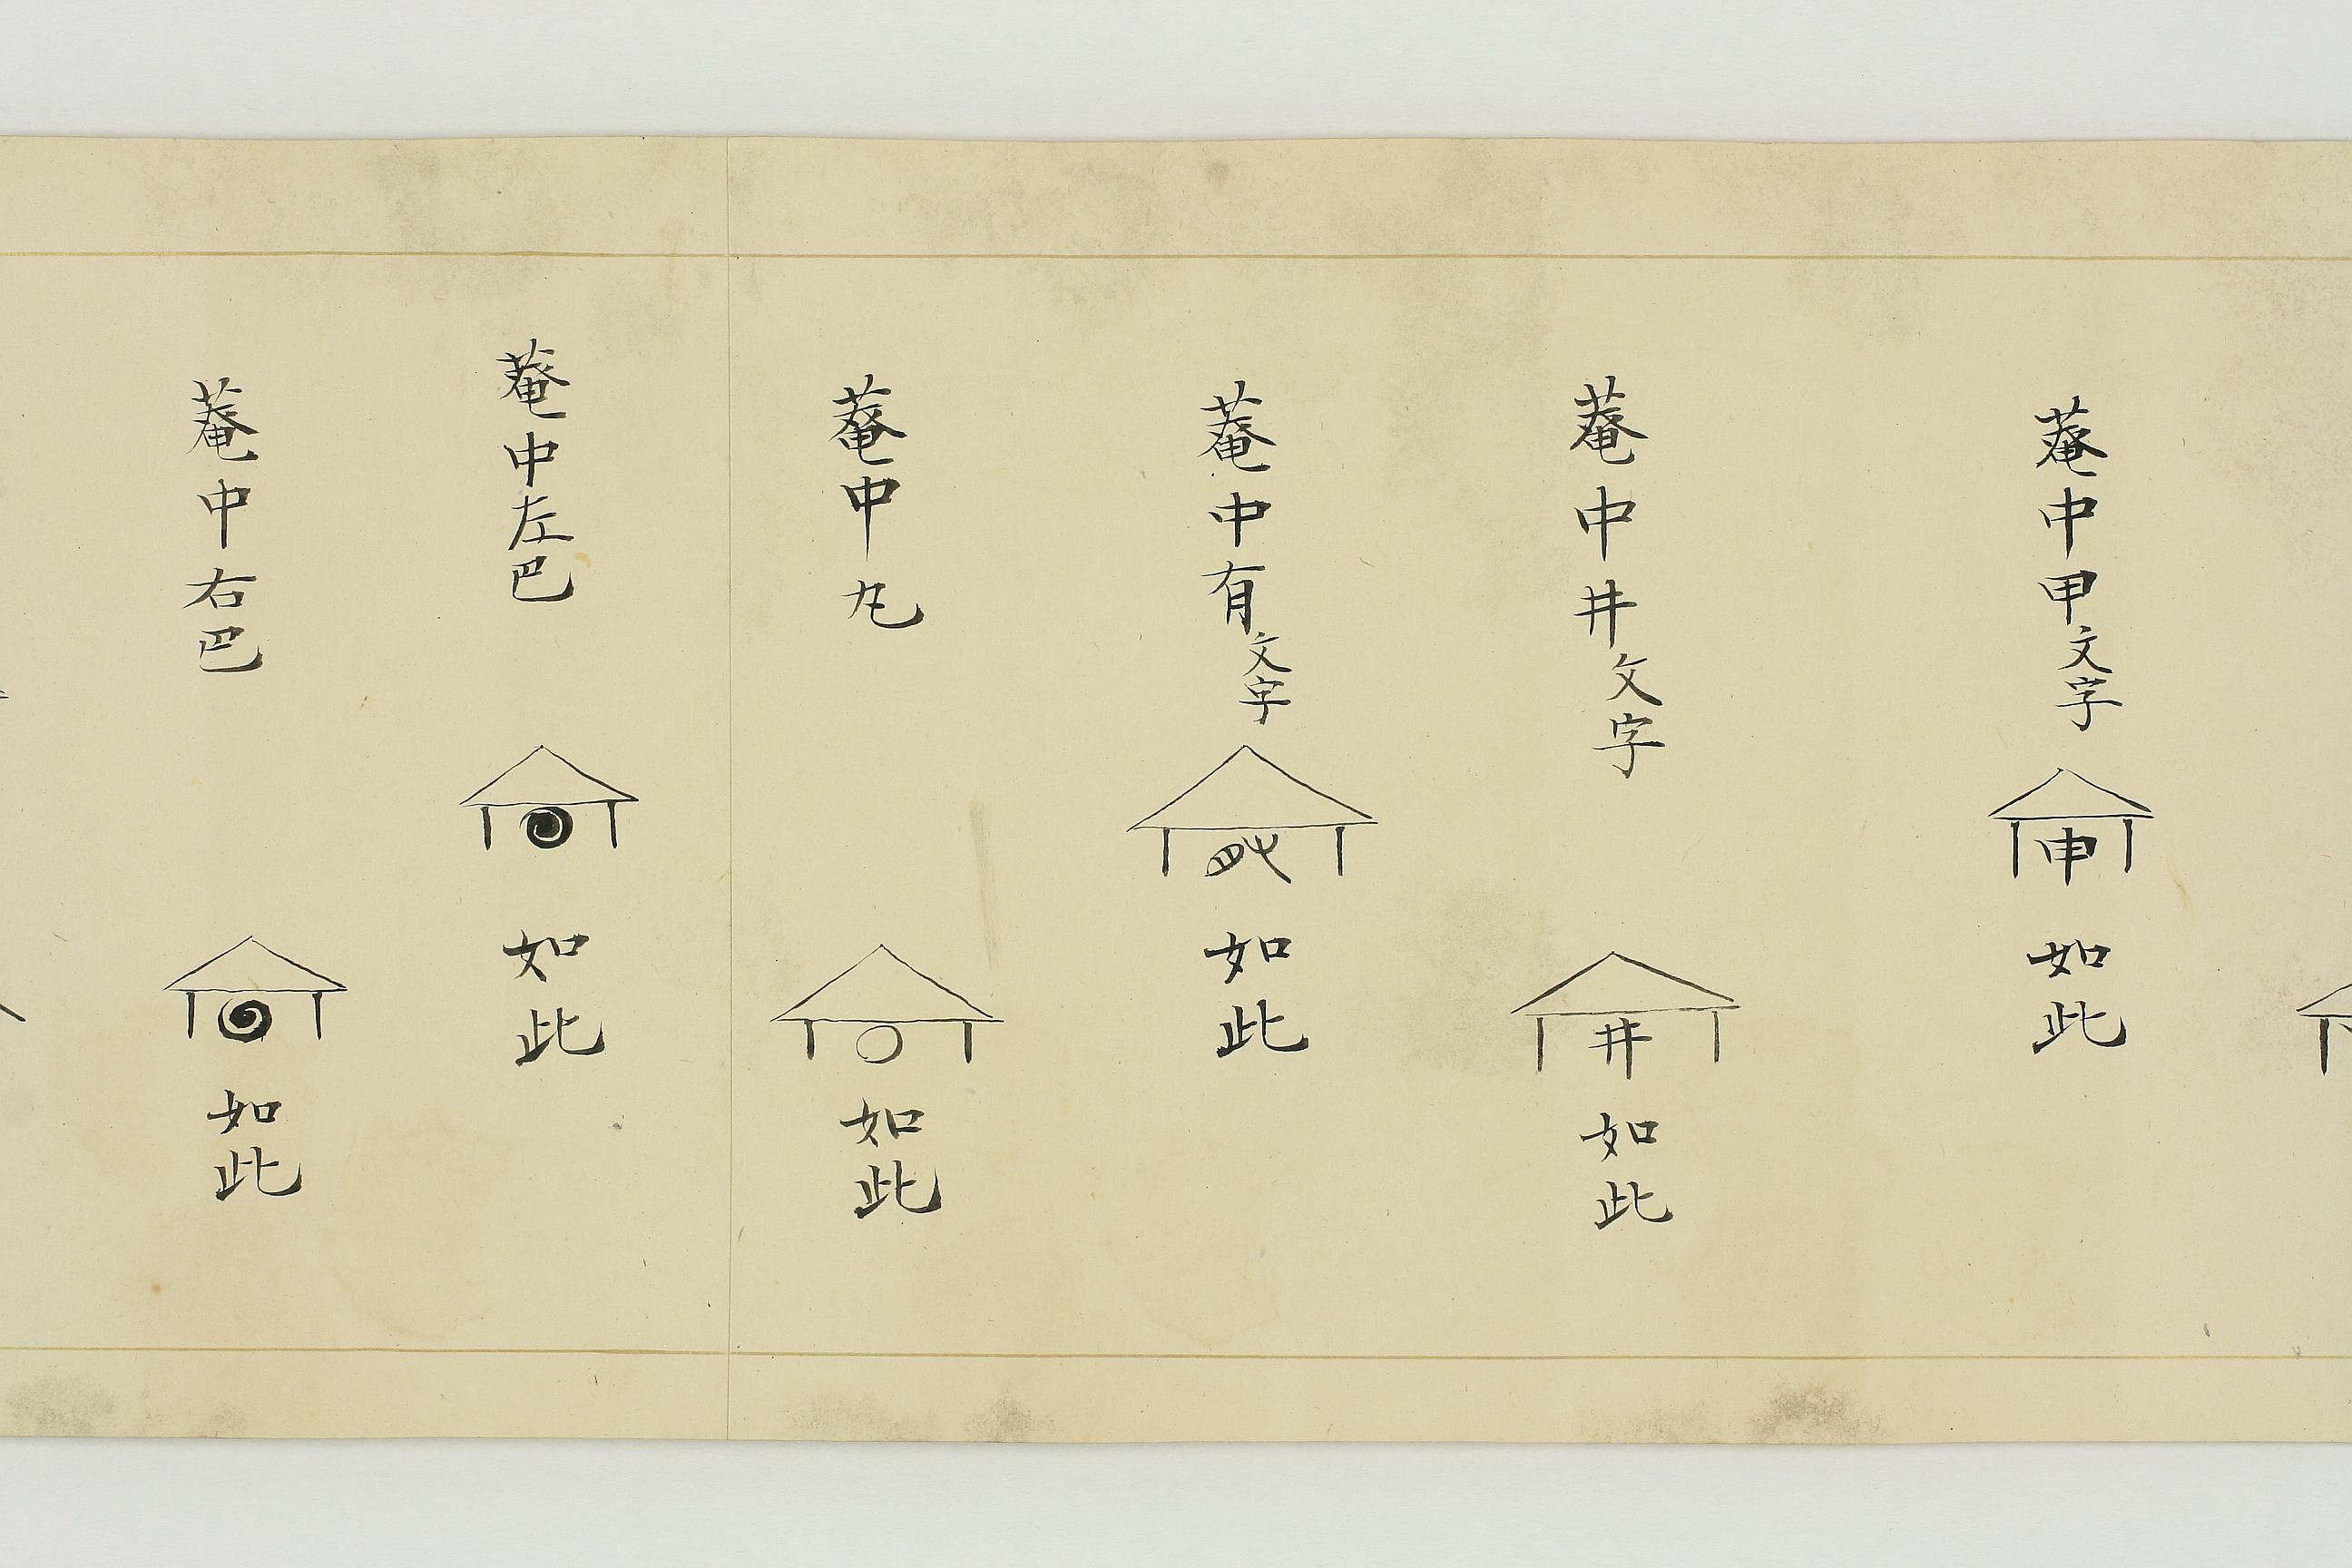 菴中甲文字
申
如此
菴中井文字
井
如此
菴中有文字
如此
菴中丸
如此
菴中左巴
如此
菴中右巴
如此